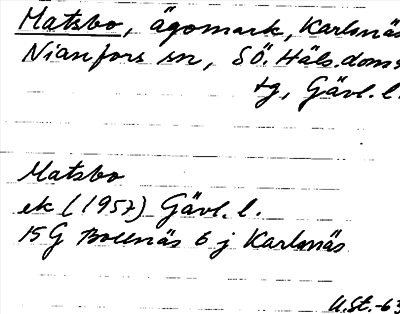 Matsbo, ägomark, Karlsnäs
Nianfors sn, SÖ. Häls. doms
tg, Gävl. l.
Matsbo
ek (1957) Gävl. l.
15G Bollnäs 6 j Karlsnäs
U.St.-63